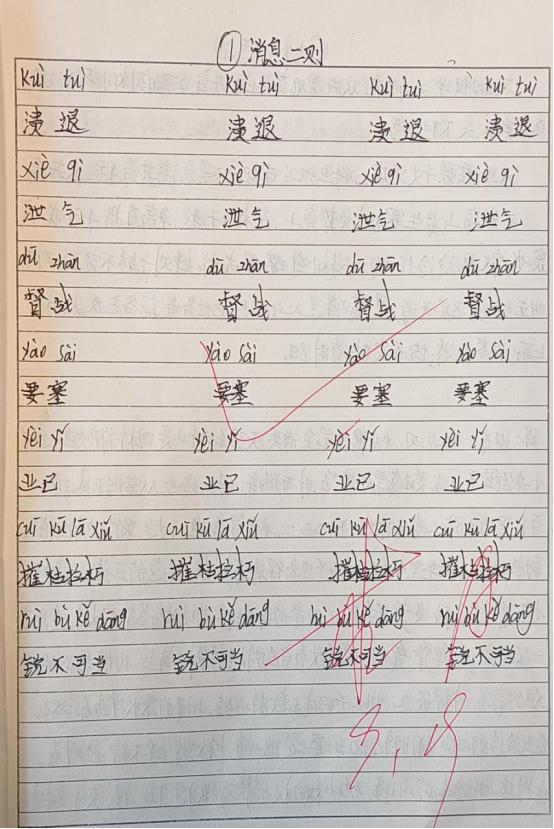 ① 消息二则
kuì tuì kuì tuì kuì tuì kuì tuì
溃退 溃退 溃退 溃退
xiè qì xiè qì xiè qì xiè qì
泄气 泄气 泄气 泄气
dū zhān dū zhān dū zhān dū zhān
督战 督战 督战 督战
yào sài yào sài yào sài yào sài
要塞 要塞 要塞 要塞
yèi yǐ yèi yǐ yèi yǐ yèi yǐ
业已 业已 业已 业已
cuī kū lā xiǔ cuī kū lā xiǔ cuī kū lā xiǔ cuī kū lā xiǔ
摧枯拉朽 摧枯拉朽 摧枯拉朽 摧枯拉朽
ruì bù kě dāng ruì bù kě dāng ruì bù kě dāng ruì bù kě dāng
锐不可当 锐不可当 锐不可当 锐不可当